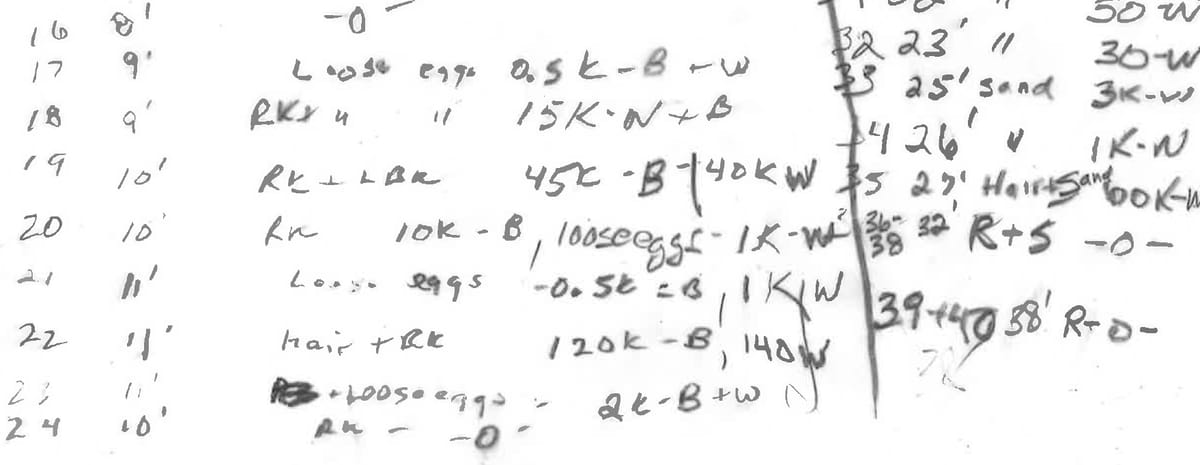 16 8' -0-
17 9' Loose eggs 0.5K-B+W
18 9' RK+ " " 15K-N+B
19 10' RK + LBR 45K-B 140KW
20 10' RK 10K-B, loose eggs- 1K-W
21 11' Loose eggs -0.5K=B, 1K W
22 11' Hair + RK 120K-B, 140W
23 11' + Loose eggs - 2K-B+W
24 10' RK - -0-
" 50W
32 23' " 30-W
33 25' Sand 3K-W
26' " 1K-N
35 27' Hair+Sand 00K-W
36-38 32' R+S -0-
39+40 38' R-0-